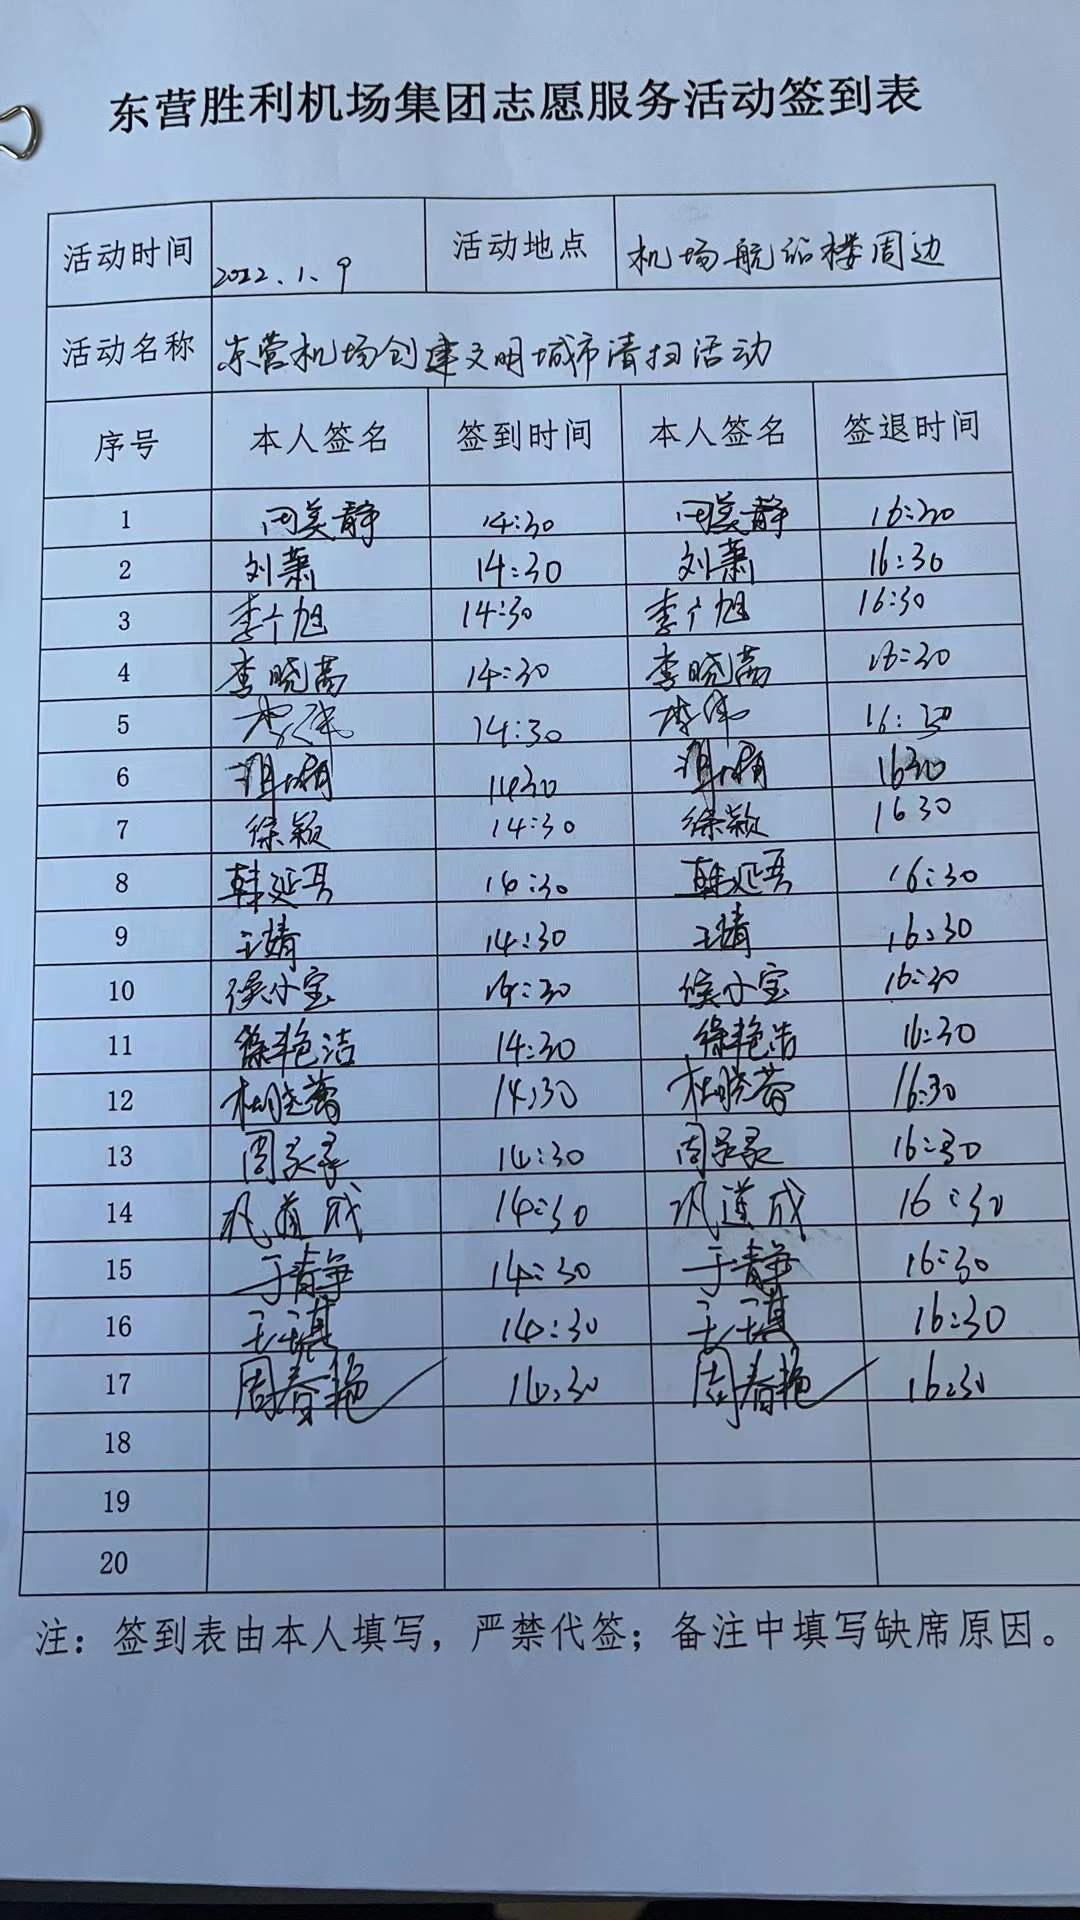 东营胜利机场集团志愿服务活动签到表
活动时间 2022.1.9 活动地点 机场航站楼周边
活动名称 东营机场创建文明城市清扫活动
序号 本人签名 签到时间 本人签名 签退时间
1 闫美静 14:30 闫美静 16:30
2 刘萧 14:30 刘萧 16:30
3 李广旭 14:30 李广旭 16:30
4 李晓茜 14:30 李晓茜 16:30
5 李伟 14:30 李伟 16:30
6 1430 1630
7 徐颖 14:30 徐颖 1630
8 韩延吾 14:30 韩延吾 16:30
9 王婧 14:30 王婧 16:30
10 侯小宝 14:30 侯小宝 16:30
11 徐艳洁 14:30 徐艳洁 16:30
12 杜晓 14:30 杜晓 16:30
13 周 14:30 周 16:30
14 巩道成 14:30 巩道成 16:30
15 于静 14:30 于静 16:30
16 王琪 14:30 王琪 16:30
17 周春艳 14:30 周春艳 16:30
18
19
20
注：签到表由本人填写，严禁代签；备注中填写缺席原因。